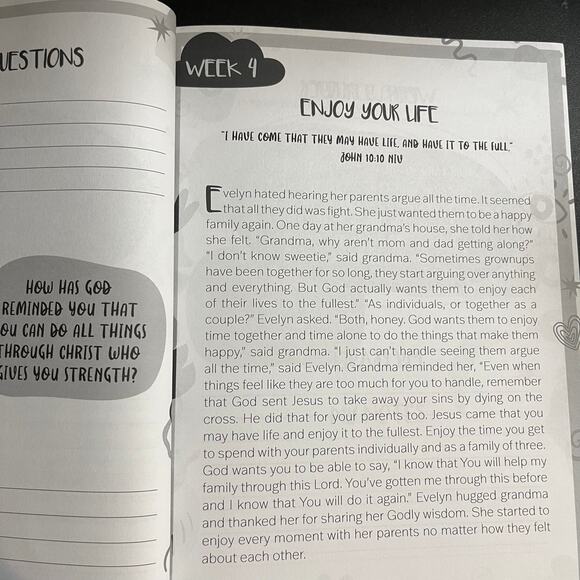 UESTIONS
HOW HAS GOD
REMINDED YOU THAT
YOU CAN DO ALL THINGS
THROUGH CHRIST WHO
GIVES YOU STRENGTH?
WEEK 4
ENJOY YOUR LIFE
"I HAVE COME THAT THEY MAY HAVE LIFE, AND HAVE IT TO THE FULL."
JOHN 10:10 NIV
Evelyn hated hearing her parents argue all the time. It seemed
that all they did was fight. She just wanted them to be a happy
family again. One day at her grandma's house, she told her how
she felt. "Grandma, why aren't mom and dad getting along?"
"I don't know sweetie," said grandma. "Sometimes grownups
have been together for so long, they start arguing over anything
and everything. But God actually wants them to enjoy each
of their lives to the fullest." "As individuals, or together as a
couple?" Evelyn asked. "Both, honey. God wants them to enjoy
time together and time alone to do the things that make them
happy," said grandma. "I just can't handle seeing them argue
all the time," said Evelyn. Grandma reminded her, "Even when
things feel like they are too much for you to handle, remember
that God sent Jesus to take away your sins by dying on the
cross. He did that for your parents too. Jesus came that you
may have life and enjoy it to the fullest. Enjoy the time you get
to spend with your parents individually and as a family of three.
God wants you to be able to say, "I know that You will help my
family through this Lord. You've gotten me through this before
and I know that You will do it again." Evelyn hugged grandma
and thanked her for sharing her Godly wisdom. She started to
enjoy every moment with her parents no matter how they felt
about each other.